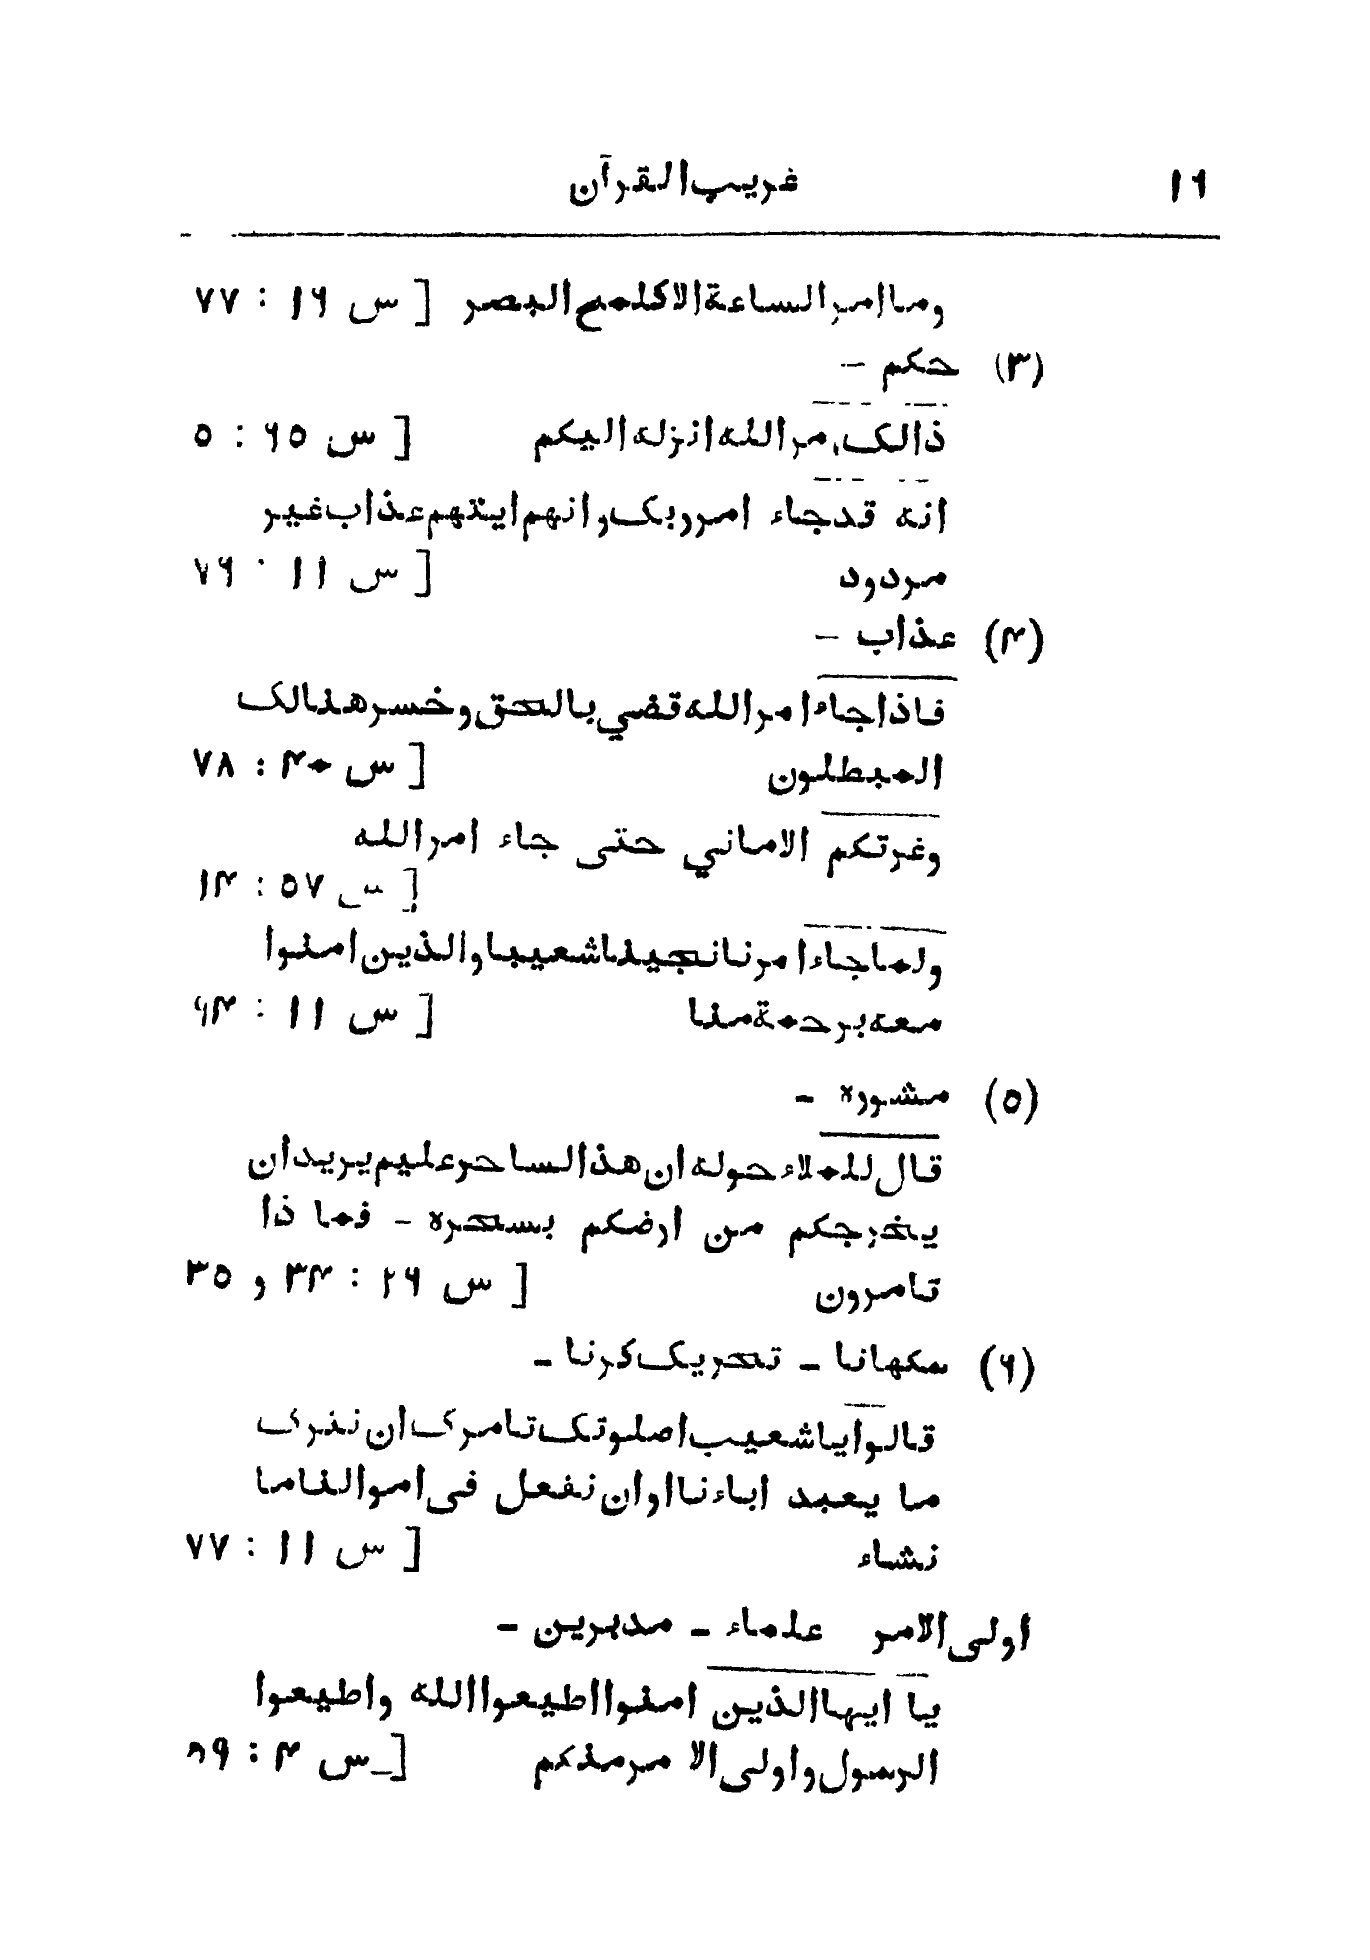 ۱۶ غریب القرآن
وما امر الساعة الا کلمح البصر [ س ۱۶ : ۷۷
(۳) حکم –
ذالک امر الله انزله الیکم [ س ۶۵ : ۵
انه قد جاء امر ربک و انهم ایتهم عذاب غیر
مردود [ س ۱۱ : ۷۶
(۴) عذاب –
فاذا جاء امر الله قضي بالحق و خسر هنالک
المبطلون [ س ۴۰ : ۷۸
وغرتکم الاماني حتی جاء امر الله
[ س ۵۷ : ۱۴
ولما جاء امرنا نجینا شعیبا والذین امنوا
معه برحمة منا [ س ۱۱ : ۹۴
(۵) مشوره –
قال للملاء حوله ان هذا لساحر علیم یرید ان
یخرجکم من ارضکم بسحره – فما ذا
تامرون [ س ۲۶ : ۳۴ و ۳۵
(۶) سکهانا – تحریک کرنا –
قالوا یا شعیب اصلوتک تامرک ان نترک
ما یعبد اباءنا او ان نفعل فی اموالنا ما
نشاء [ س ۱۱ : ۷۷
اولی الامر علماء – مدبرین –
یا ایها الذین امنوا اطیعوا الله واطیعوا
الرسول و اولی الا مر منکم [ س ۴ : ۵۹